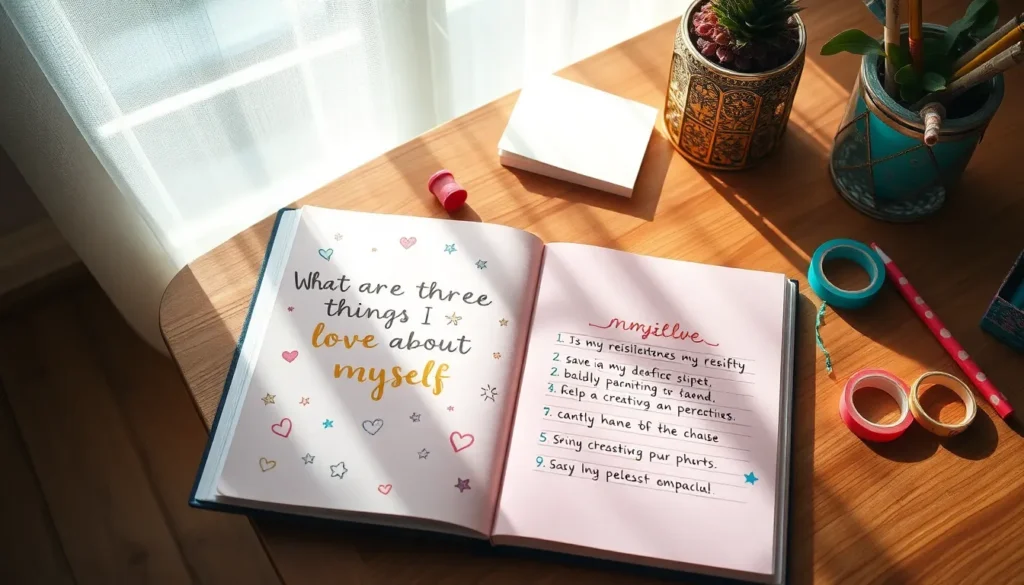 What are three
things I
love about
myself
mnyjllve
1. Is my reisilehtarzes my resifty
2. save ia my deafice slipet,
2. baldly parniting cr faend,
3. Relp a creating an perectives.
7. cantly hane of the chause
5 Sering creasting pur phurts.
9. Sasy lny pelesst ompaclu!